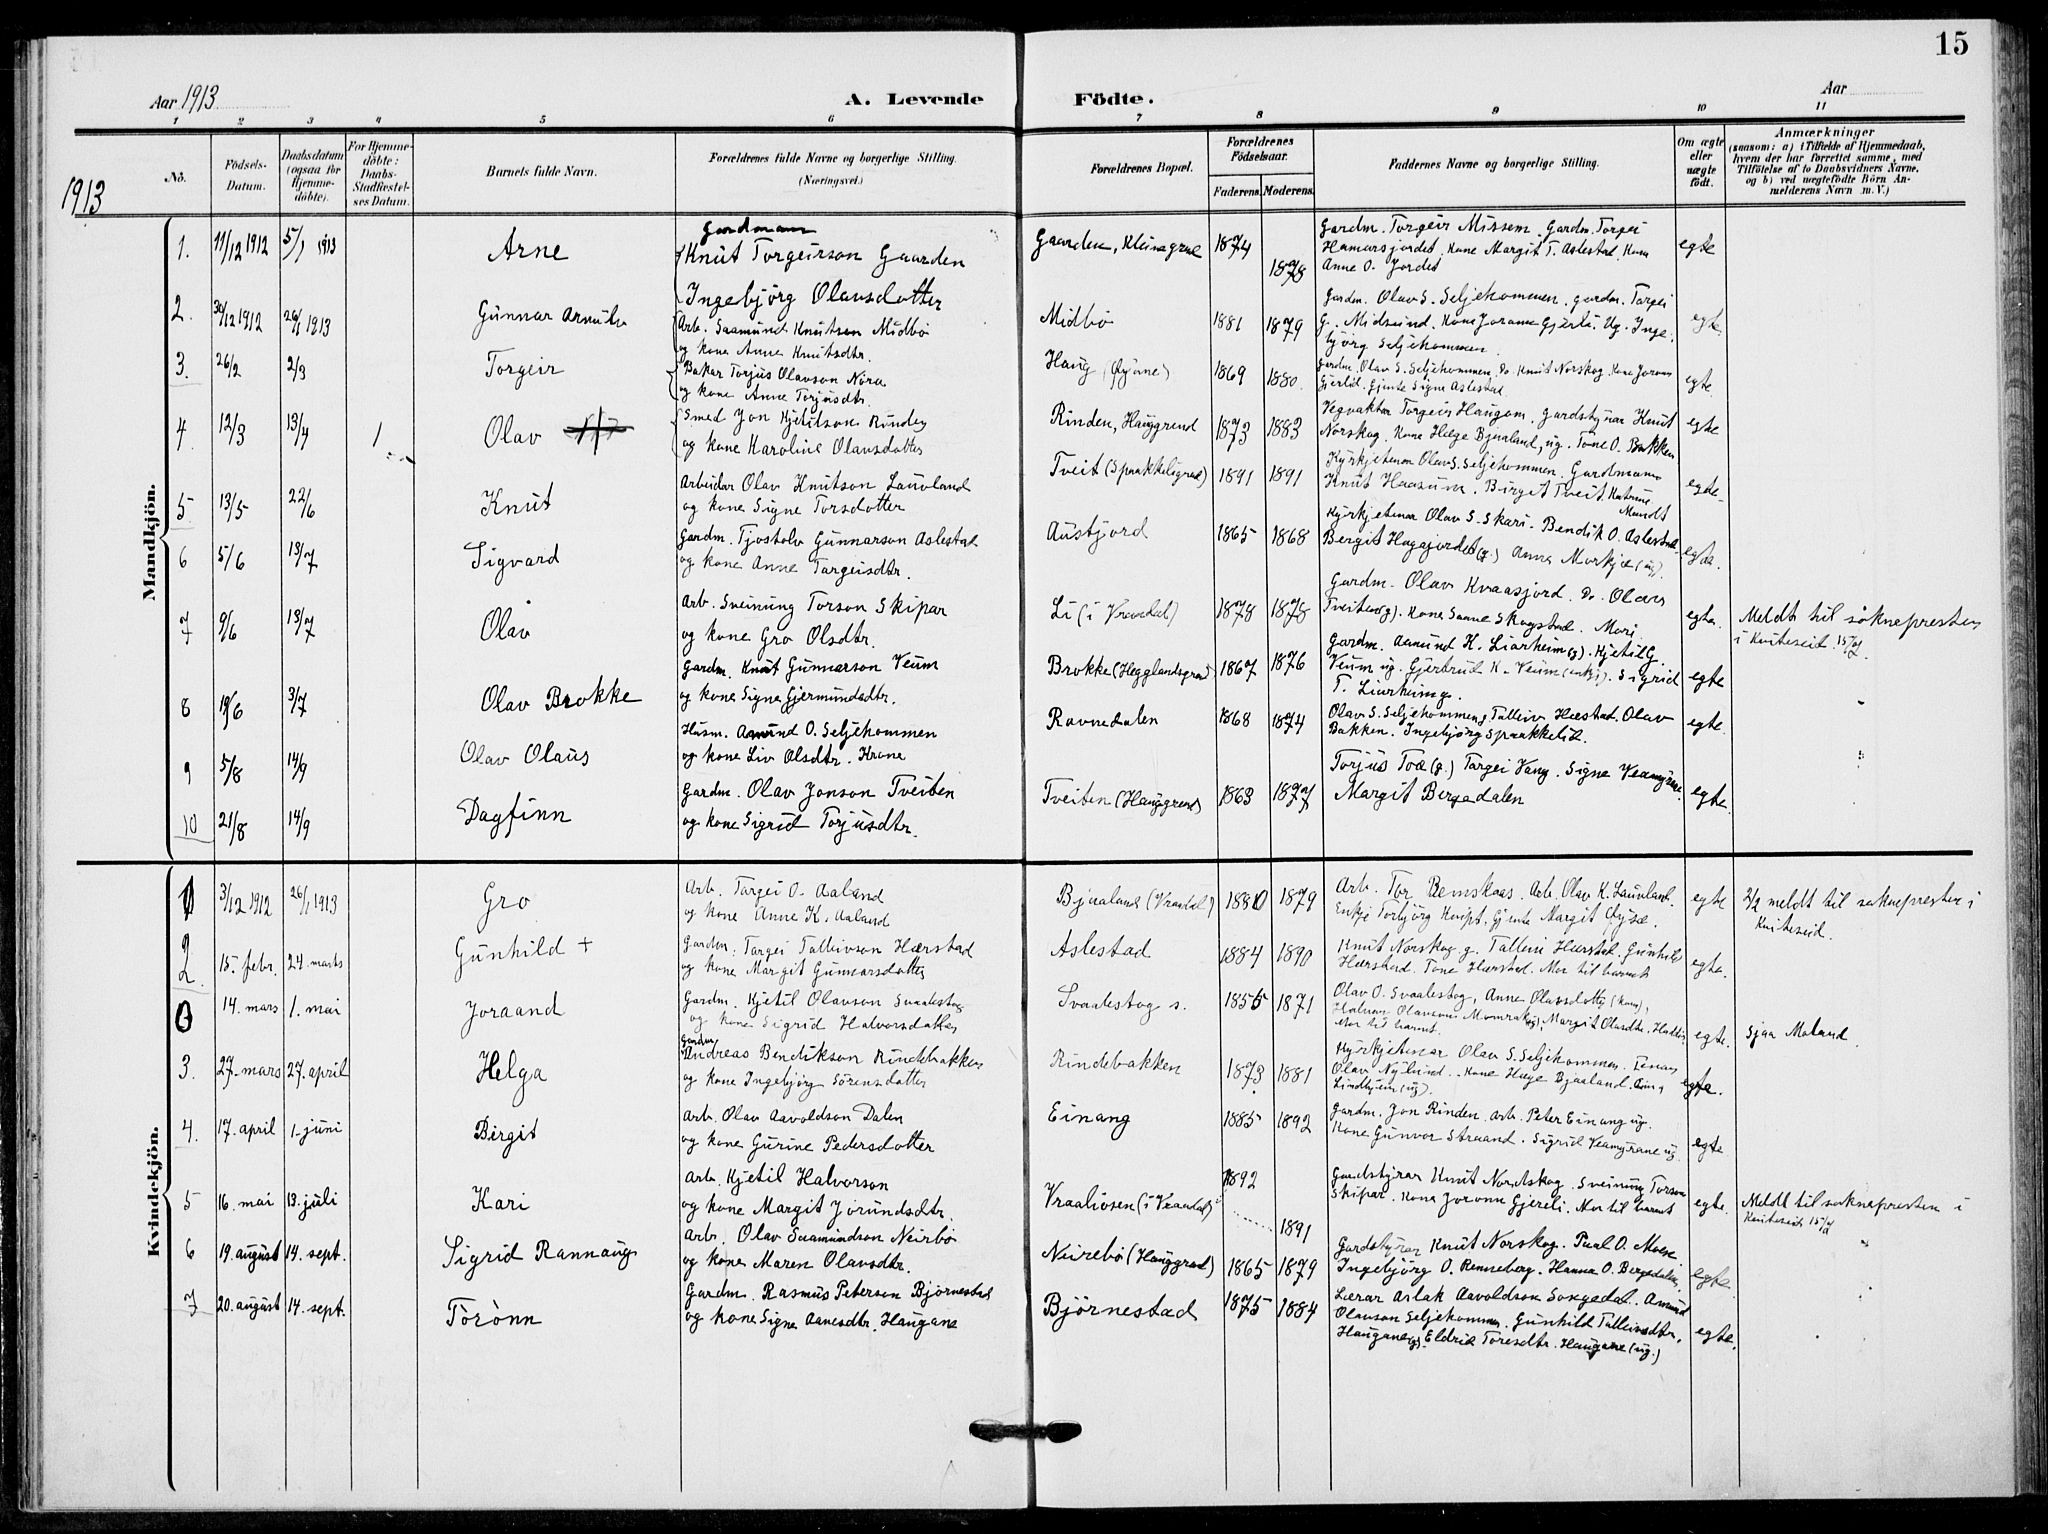 15
Aar 1913
A. Levende Födte.
Aar
1 2 3 4 5 6 7 8 9 10 11
No.
Födsels-Datum.
Daabsdatum (ogsaa for Hjemme-döbte).
For Hjemme-döbte: Daabs-Stadfæstel-ses Datum.
Barnets fulde Navn.
Forældrenes fulde Navne og borgerlige Stilling. (Næringsvei.)
Forældrenes Bopæl.
Forældrenes Födselsaar.
Faderens. Moderens.
Faddernes Navne og borgerlige Stilling.
Om ægte eller uægte födt.
Anmærkninger
(saasom: a) i Tilfælde af Hjemmedaab, hvem der har forrettet samme, med Tilföielse af to Daabsvidners Navne, og b) ved uægtefödte Börn An-melderens Navn m. V.)
1913
Mandkjön.
1. 11/12 1912 5/1 1913 Arne
Gardmann
Knut Torgeirson Gaarden
Ingebjörg Olavsdotter
Gaarden, Kleivgrend 1874 1878
Gardm. Torgeir Missem. Gardm. Torgei
Hamarsjordet, Kone Margit T. Aslestad. Kona
Anne O. Jordet
egte
2. 30/12 1912 26/1 1913 Gunnar Arnulv
Arb. Saamund Knutson Midbö
og kone Anne Knutsdtr.
Midbö 1881 1879
Gardm. Olav S. Seljehommen, gardm. Torgei
G. Midsund. Kone Jorann Gjerli. Ug. Inge-
björg Seljehommen.
egte
3. 26/2 2/3 Torgeir
Bakar Torjus Olavson Nöra
og kone Anne Torjusdtr.
Haug (Öyane) 1869 1880.
Gardm. Olav S. Seljehommen, Do. Knut Norskog. Kone Jorann
Gjerlid. Gjente Signe Aslestad
egte
4. 12/3 13/4 1 Olav
Smed Jon Kjetilson Rinden
og kone Karoline Olavsdotter
Rinden, Hauggrend 1873 1883
Vegvaktar Torgeir Haugom, gardstyrar Knut
Norskog. Kone Hæge Bjaaland, ug. Tone O. Bakken
egte
5. 13/5 22/6 Knut
Arbeidar Olav Knutson Lauvland
og kone Signe Torsdotter
Tveit (Spaakkeligrend) 1891 1891
Kyrkjetenar Olav S. Seljehommen. Gardmann
Knut Haasum. Birgit Tveit. Katrine
Mundt
egte
6 5/6 13/7 Sigvard
Gardm. Tjostolv Gunnarson Aslestad
og kone Anne Targeisdtr.
Austjord 1865 1868
Kyrkjetenar Olav S. Skari. Bendik O. Aslestad
Bergit Hagajordet (g.) Anna Morkje (ug).
egte.
7 9/6 13/7 Olav
Arb. Sveinung Torson Skipar
og kone Gro Olsdtr.
Li (i Vraadal) 1878 1878
Gardm. Olav Kvaasjord. Do. Olav
Tveito (g). Kone Saave Skogstad. Mari
egte.
Meldt til soknepresten
i Kviteseid 15/7.
8 19/6 3/7 Olav Brokke
Gardm. Knut Gunnarson Veum
og kone Signe Gjermundsdtr.
Brokke (Hegglandsgrend) 1867 1876
Gardm. Aamund K. Liarheim (g). Kjetil G.
Veum ug. Gjertrud K. Veum (enkj). Sigrid
T. Liarheim g.
egte
9 5/8 14/9 Olav Olaus
Husm. Amund O. Seljehommen
og kone Liv Olsdtr. Krane
Ravnedalen 1868 1874
Olav S. Seljehommen, Talleiv Hæstad. Olav
Bakken. Ingebjörg Spaakkelid.
egte.
10 21/8 14/9 Dagfinn
Gardm. Olav Jonson Tveiten
og kone Sigrid Torjusdtr.
Tveiten (Hauggrend) 1863 1877
Torjus Toe (g.) Targei Vang. Signe Veamyrane.
Margit Bergedalen
egte.
Kvindekjön.
1 3/12 1912 26/1 1913 Gro
Arb. Targei O. Aaland
og kone Anne K. Aaland
Bjaaland (Vraadal) 1880 1879
Arb. Tor Bemskaas. Arb. Olav K. Lauvland.
Enkje Torbjörg Kvipt. Gjente Margit Öyse.
egte
2/2 meldt til soknepresten i
Kviteseid.
2. 15. febr. 24. marts Gunhild +
Gardm. Targei Talleivson Hærstad
og kone Margit Gunnarsdotter
Aslestad 1884 1890
Knut Norskog g. Talleiv Hærstad. Gunhild
Hærstad. Tone Hærstad. Mor til barnet
egte.
0 14. mars 1. mai Joraand
Gardm. Kjetil Olavson Svaalestog
og kone Sigrid Halvorsdotter
Svaalestog s. 1855 1871
Olav O. Svaalestog, Anne Olavsdotter (kone),
Halvor Olavson Momrak (g), Margit Olavdtr.
Mor til barnet.
egte.
Sjaa Moland.
3. 27. mars 27. april Helga
Gardm.
Andreas Bendikson Rindebakken
og kone Ingebjörg Sörensdotter
Rindebakken 1873 1881
Kyrkjetenar Olav S. Seljehommen. Einar
Olav Nylund. Kone Hæge Bjaaland.
Lindheim (ug).
egte.
4. 17. april 1. juni Birgit
Arb. Olav Aavoldson Dalen
og kone Gurine Pedersdotter
Einang 1885 1892
Gardm. Jon Rinden. Arb. Peter Einang ug.
Kone Gunvor Straand. Sigrid Veamyrane ug.
egte
5 16. mai 13. juli Kari
Arb. Kjetil Halvorson
og kone Margit Jörundsdtr.
Vraaliosen (i Vraadal) 1892 1891
Gardstyrar Knut Nordskog. Sveinung Torson
Skipar. Kona Joronn Gjereli. Mor til barnet
egte.
Meldt til soknepresten i
Kviteseid 15/7
6 19. august 14. sept. Sigrid Rannaug
Arb. Olav Saamundson Neirbö
og kone Maren Olavsdtr.
Neirebö (Hauggrend) 1865 1879
Gardstyrar Knut Norskog. Paal O. Moen
Ingebjörg O. Renneberg. Hanna O. Bergedalen
egte.
7 20. august 14. sept. Törönn
Gardm. Rasmus Peterson Björnestad
og kone Signe Aanesdtr. Haugane
Björnestad 1875 1884
Lærar Aslak Aavoldson Songedal. Amund
Olavson Seljehommen. Gunhild Talleivsdtr.
Haugane (g). Eldrid Toresdtr. Haugane (ug.)
egte.